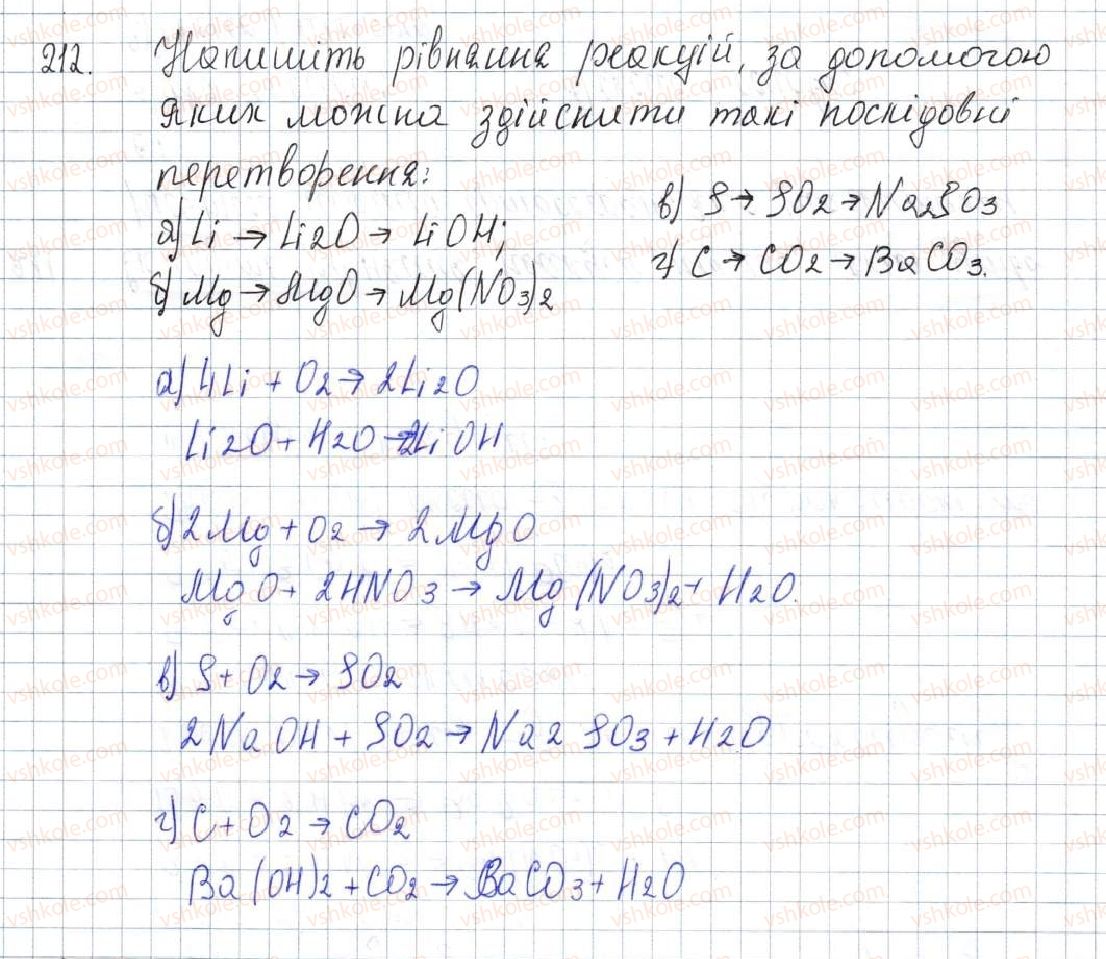 212. Напишіть рівняння реакцій, за допомогою
яких можна здійснити такі послідовні
перетворення:
а) Li → Li2O → LiOH;
б) Mg → MgO → Mg(NO3)2
в) S → SO2 → Na2SO3
г) C → CO2 → BaCO3.
а) 4Li + O2 → 2Li2O
Li2O + H2O → 2LiOH
б) 2Mg + O2 → 2MgO
MgO + 2HNO3 → Mg(NO3)2 + H2O.
в) S + O2 → SO2
2NaOH + SO2 → Na2SO3 + H2O
г) C + O2 → CO2
Ba(OH)2 + CO2 → BaCO3 + H2O
vshkole.com